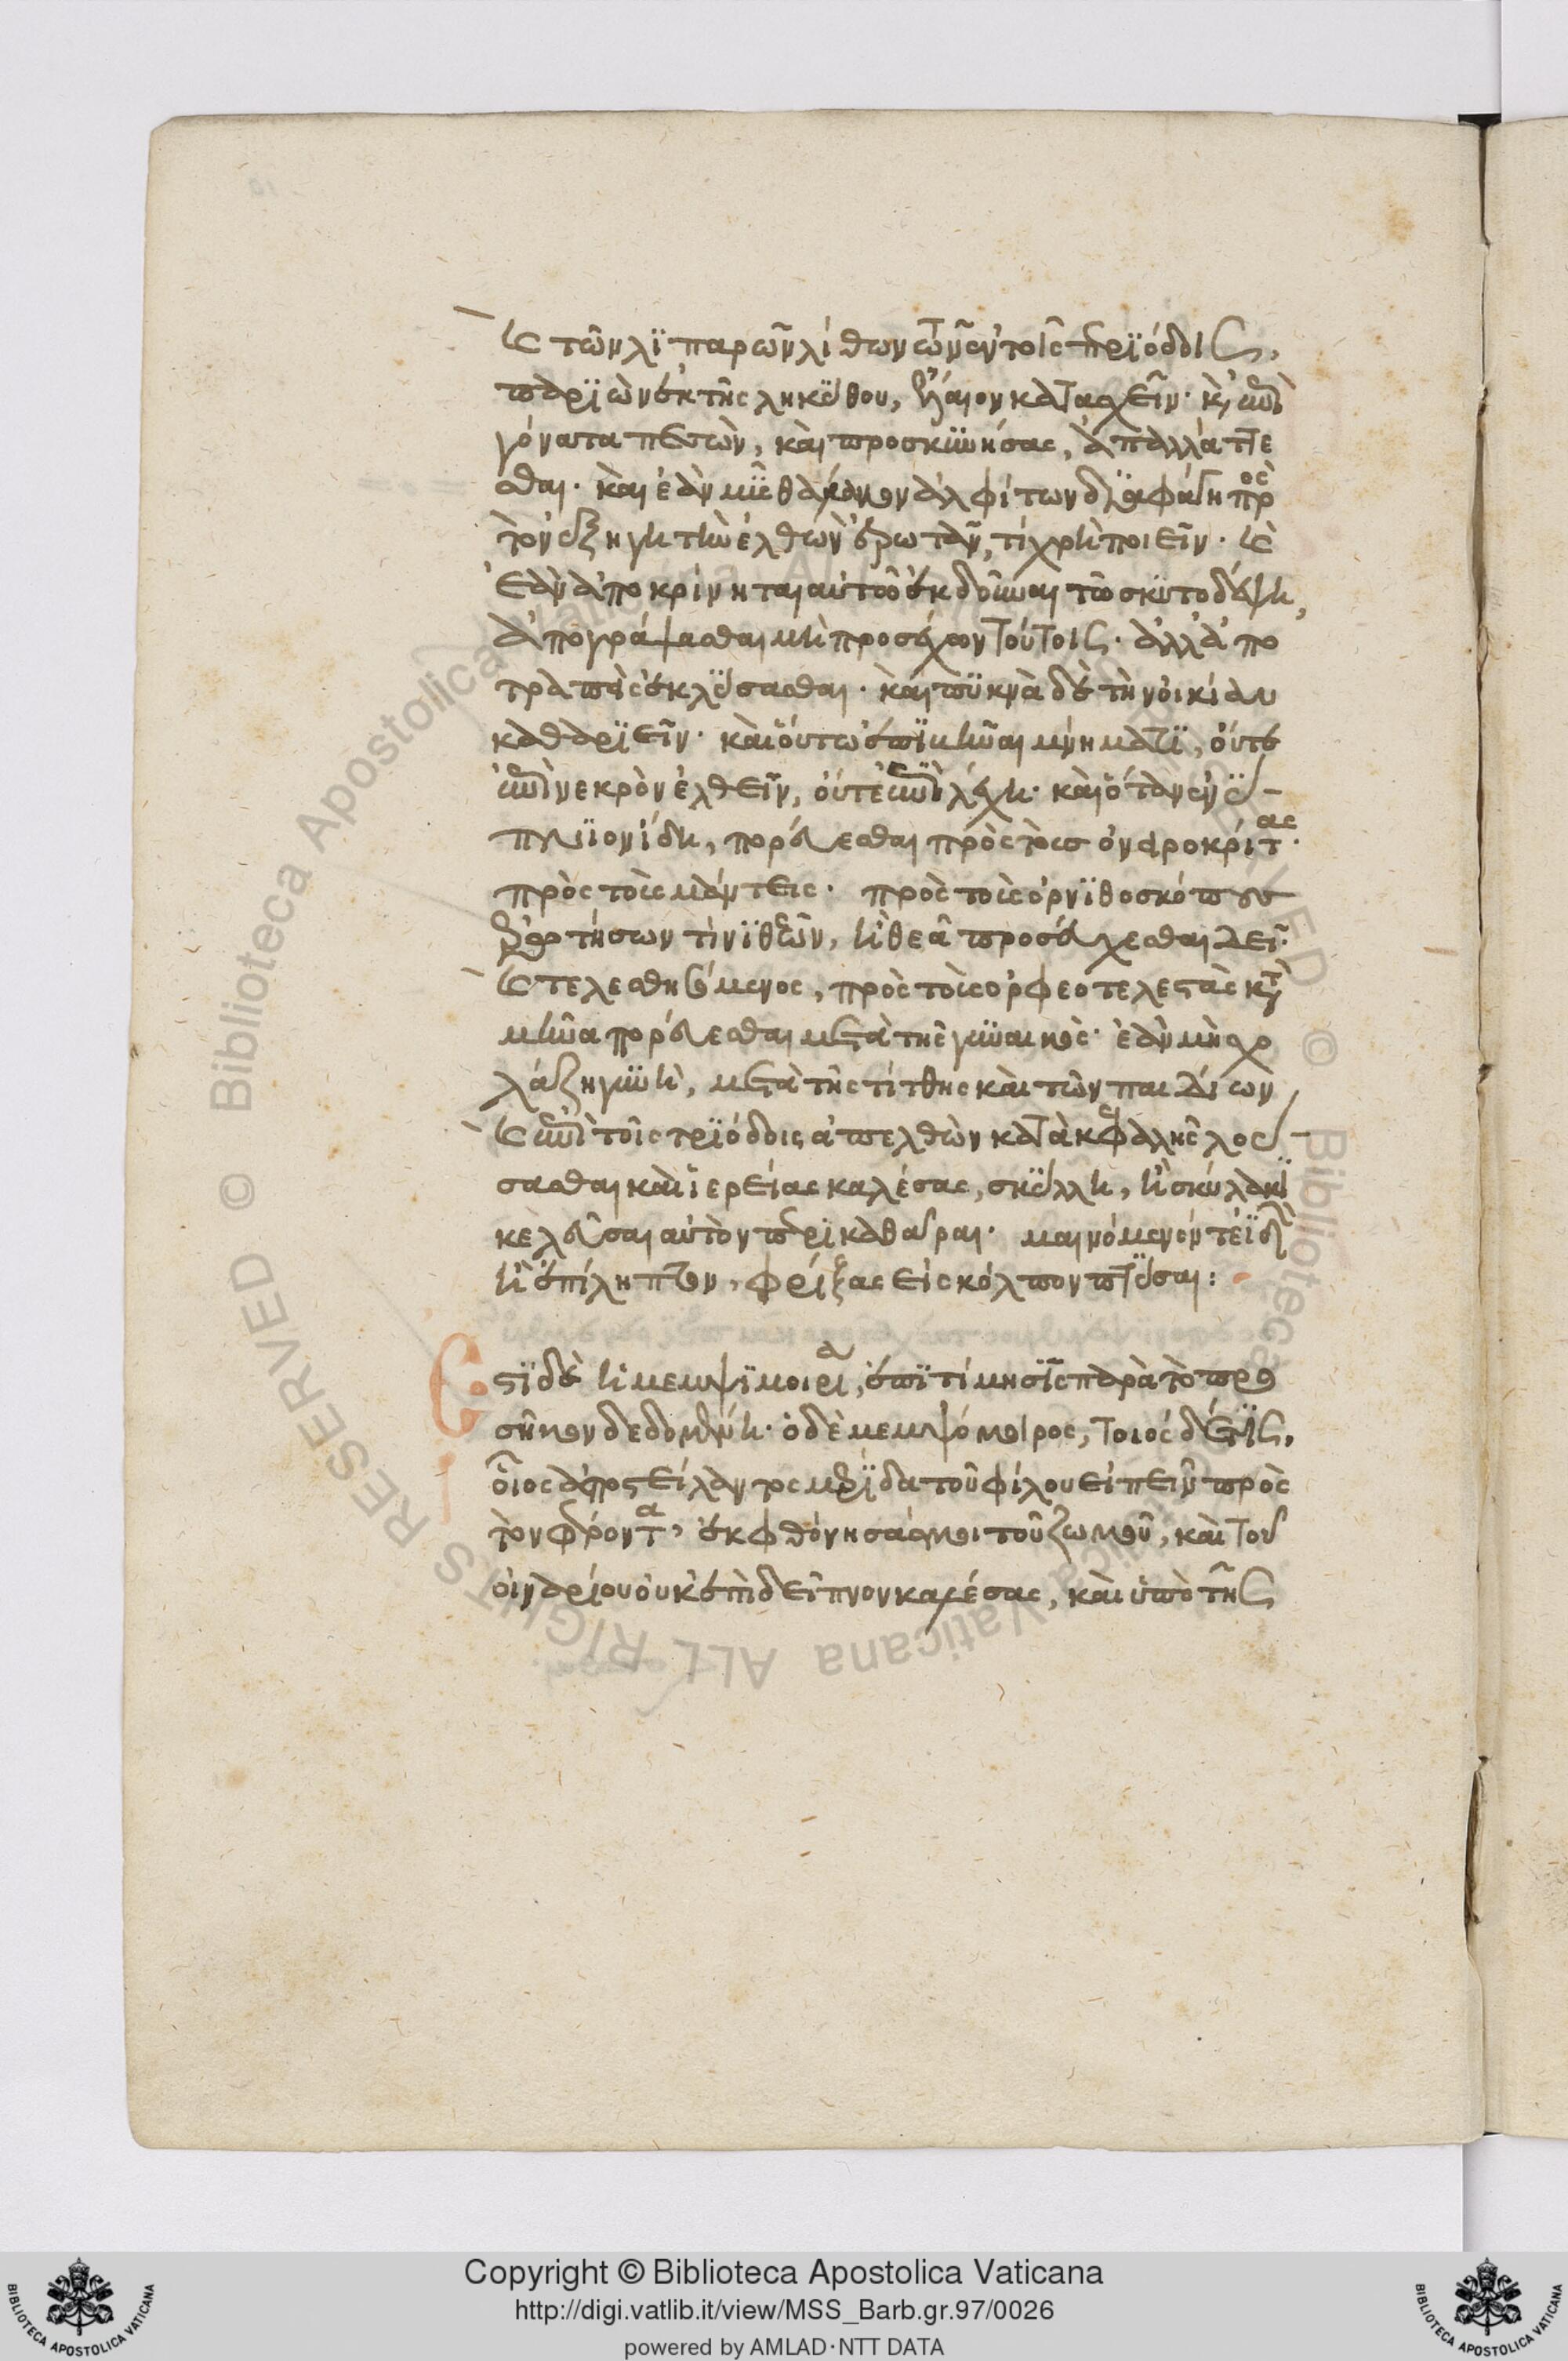 καὶ τῶν λιπαρῶν λίθων τῶν ἐν τοῖς τριόδοις,
παριὼν ἐκ τῆς ληκύθου, ἔλαιον καταχεῖν· καὶ ἐπὶ
γόνατα πεσὼν, καὶ προσκυνήσας, ἀπαλλάττε
σθαι· καὶ ἐὰν μῦς θύλακον ἀλφίτων διαφάγη πρὸς
τὸν ἐξηγητὴν ἐλθὼν ἐρωτᾶν, τί χρὴ ποιεῖν· καὶ
ἐὰν ἀποκρίνηται αὐτῶ ἐκδοῦναι τῶ σκυτοδέψη,
ἀπογράψασθαι μὴ προσέχων τούτοις· ἀλλ' ἀπο
τραπεὶς ἐκλύσασθαι· καὶ πυκνὰ δὲ τὴν οἰκίαν
καθαριεῖν· καὶ οὔτω ἐπϊ μνῆαι μνήματϊ, οὔτε
ἐπὶ νεκρὸν ἐλθεῖν, οὔτ' ἐπὶ λέχη· καὶ ὅταν ἐνύ-
πνιον ἴδη, πορεύεσθαι πρὸς τοὺς ὀνειροκρίτας·
πρὸς τοὺς μάντεις· πρὸς τοὺς ὀρνιθοσκόπους
ἐρωτήσων τίνι θεῶν, ἢ θεᾶ προσεύχεσθαι δεῖ·
καὶ τελεσθησόμενος, πρὸς τοὺς ὀρφεοτελεστὰς κατὰ
μῆνα πορεύεσθαι μετὰ τῆς γυναικὸς· ἐὰν μὴ σχο
λάζη γυνὴ, μετὰ τῆς τίτθης καὶ τῶν παιδίων
καὶ ἐπὶ τοῖς τριόδοις ἀπελθὼν κατὰ κεφαλῆς λού-
σασθαι καὶ ἱερείας καλέσας, σκύλλη, ἢ σκύλακϊ
κελεῦσαι αὐτὸν περικαθαῖραι· μαινόμενόν τε ἰδὼν
ἢ ἐπίληπτον, φρίξας εἰς κόλπον πτύσαι:
Ἔστϊ δὲ ἡ μεμψϊμοιρία, ἐπιτίμησϊς παρὰ τὸ προ
σῆκον δεδομένη· ὁ δὲ μεμψόμοιρος, τοιόσδέ τϊς,
οἷος ἀποστείλαντος μερίδα τοῦ φίλου εἰπεῖν πρὸς
τὸν φέροντα, ἐκφθόνησάς μοι τοῦ ζωμοῦ, καὶ τοῦ
οἰναρίου οὐκ ἐπὶ δεῖπνον καλέσας, καὶ ὑπὸ τῆς
Copyright © Biblioteca Apostolica Vaticana
http://digi.vatlib.it/view/MSS_Barb.gr.97/0026
powered by AMLAD·NTT DATA
BIBLIOTECA APOSTOLICA VATICANA
BIBLIOTECA APOSTOLICA VATICANA
© Biblioteca Apostolica Vaticana ALL RIGHTS RESERVED